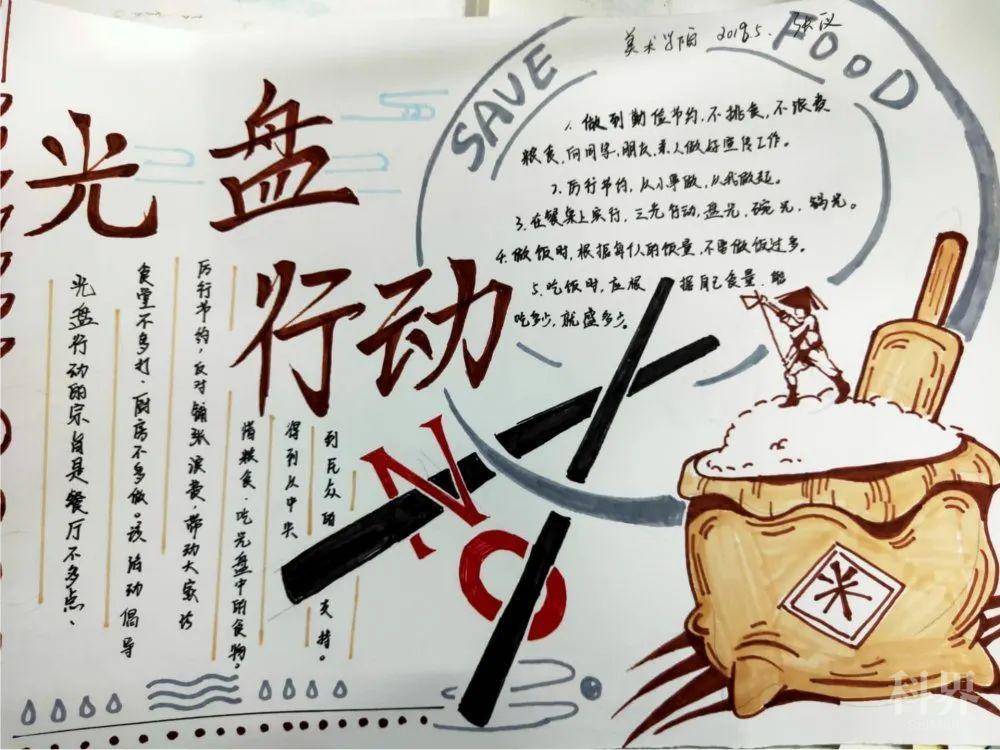 美术学院 2019.5.
SAVE FOOD
光盘
行动
1. 做到勤俭节约,不挑食,不浪费
粮食,向同学,朋友,亲人做好宣传工作。
2. 厉行节约,从小事做,从我做起。
3. 在餐桌上实行,三光行动,盘光,碗光,锅光。
4. 做饭时,根据每人的饭量,不要做饭过多。
5. 吃饭时,应根据自己食量,能
吃多少,就盛多少。
光盘行动的宗旨是餐厅不多点、
食堂不多打、厨房不多做。该活动倡导
厉行节约,反对铺张浪费,带动大家珍
惜粮食、吃光盘中的食物。
得到从中央
到民众的支持。
NO
米
科界